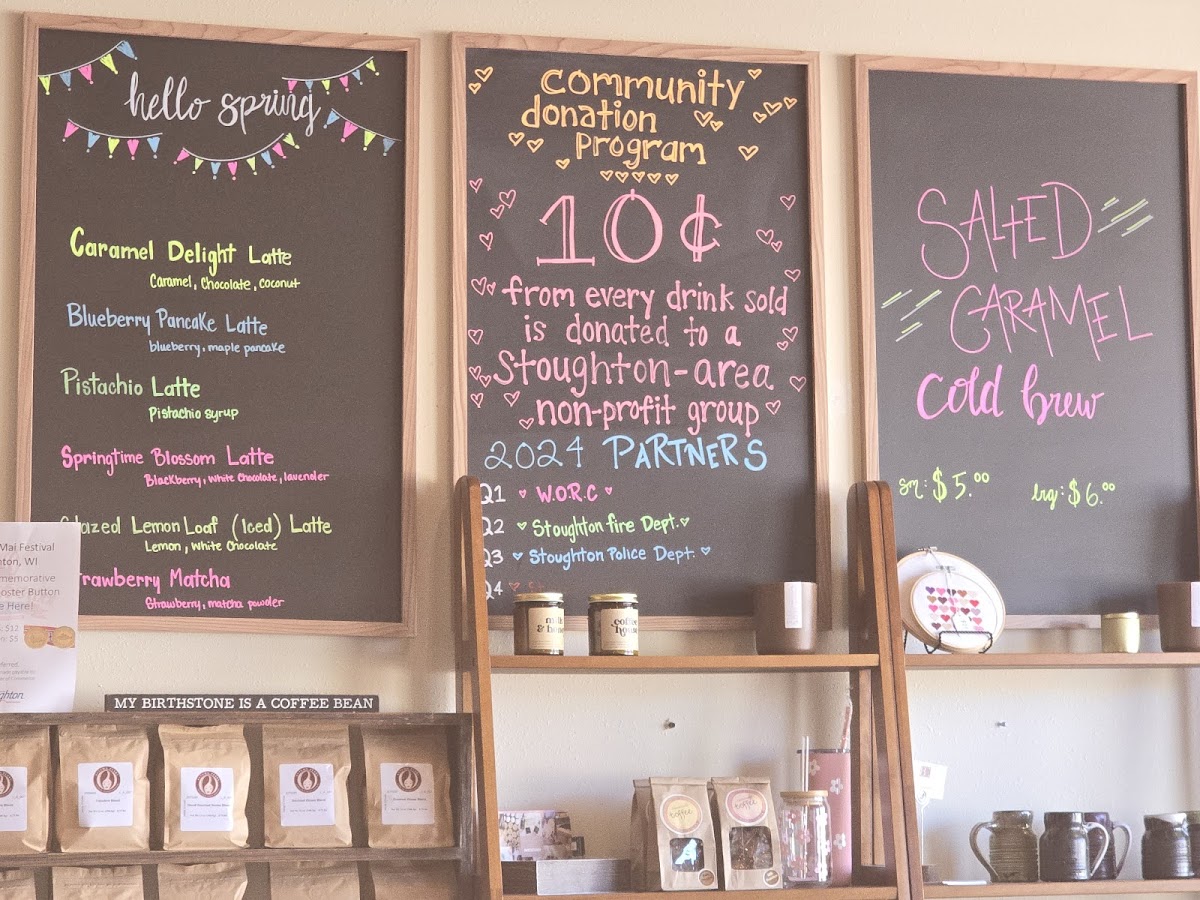 hello spring
Caramel Delight Latte
Caramel, Chocolate, coconut
Blueberry Pancake Latte
blueberry, maple pancake
Pistachio Latte
Pistachio syrup
Springtime Blossom Latte
Blackberry, white chocolate, lavender
Glazed Lemon Loaf (Iced) Latte
Lemon, White Chocolate
Strawberry Matcha
Strawberry, matcha powder
community
donation
program
10¢
from every drink sold
is donated to a
Stoughton-area
non-profit group
2024 PARTNERS
Q1 W.O.R.C
Q2 Stoughton fire Dept.
Q3 Stoughton Police Dept.
Q4
SALTED
CARAMEL
cold brew
sm: $5.00 lrg: $6.00
Mai Festival
WI
Here!
$12
$5
MY BIRTHSTONE IS A COFFEE BEAN
milk
coffee
house
coffee